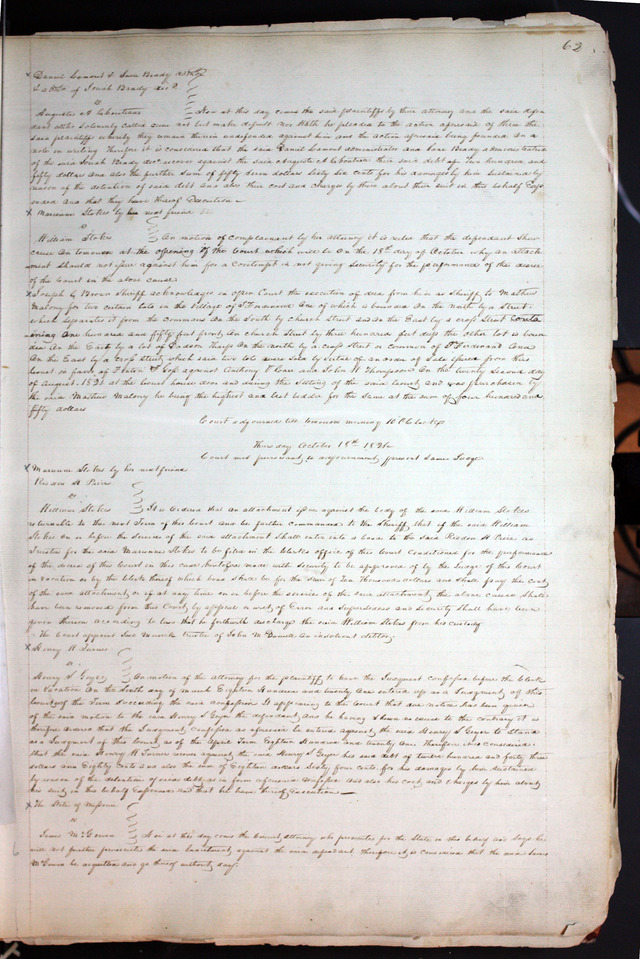 62
x Daniel Lamont & Jane Brady adsx
& adtr of Josiah Brady decd
vs
Auguste A Chouteau Now at this day came the said plaintiffs by their attorney and the said defen
dant altho solemnly called came not but made default nor hath he pleaded to the action aforesaid of them the
said plaintiffs whereby they remain therein undefended against him and the action aforesaid being founded on a
note in writing Therefore it is considered that the said Daniel Lamont administrator and Jane Brady administratrix
of the said Josiah Brady decd recover against the said Auguste A Chouteau their said debt of two hundred and
fifty dollars and also the further sum of fifty seven dollars sixty six cents for his damages by them sustained by
reason of the detention of said debt and also their cost and charges by them about their suit in this behalf Exp
ended and that they have thereof Execution
x Marianne Stokes by his next friend
vs
William Stokes On motion of complainant by his attorney it is ruled that the defendant Shew
cause on tomorrow at the opening of the Court which will be on the 18th day of October why an attach
ment should not issue against him for a contempt in not giving Security for the performance of the decree
of the Court in the above cause
x Joseph C Brown Sheriff acknowledges in open Court the execution of deed from him as Sheriff to Mathew
Malony for two certain lots in the village of St Ferdinand One of which is bounded On the north by a street
which separates it from the commons On the South by church street and On the East by a cross street conta
ining One hundred and fifty feet front, On church street by three hundred feet deep the other lot is boun
ded On the East by a lot of On the north by a cross street or common of St Ferdinand and
On the East by a cross street which said two lots were sold by virtue of an order of Sale issued from this
Court in favor of against Anthony and John W Thompson On the twenty second day
of August 1821 at the Court house door and during the Sitting of the said Court and was purchased by
the said Mathew Malony he being the highest and last bidder for the same at the sum of four hundred and
fifty dollars
Court adjourned till tomorrow morning 10 OClock
Thursday October 18th 1821
Court met pursuant to adjournment, present same Judge
x Marianne Stokes by his next friend
Risdon H Price
vs
William Stokes It is ordered that an attachment issue against the body of the said William Stokes
returnable to the next Term of this Court and be further commanded to the Sheriff that if the said William
Stokes on or before the service of the said attachment shall enter into a bond to the said Risdon H Price as
Trustee for the said Marianne Stokes to be filed in the clerks office of this Court Conditioned for the performance
of the decree of this Court in this cause heretofore made with Security to be approved of by the Judge of this Court
in vacation or by the clerk thereof which bond shall be for the sum of Ten Thousand dollars and shall pay the cost
of the said attachment, or if at any time on or before the service of the said attachment, the above cause shall
have been removed from this Court by appeal or writ of Error and Supersedeas and Security shall have been
given thereon according to law that he forthwith discharge the said William Stokes from his custody
The Court appoint trustee of John McDonald an insolvent debtor
x Henry W
vs
Henry S Geyer On motion of the attorney for the plaintiff to have the Judgment confessed before the Clerk
in Vacation On the Sixth day of March Eighteen Hundred and twenty one entered up as a Judgment of this
Court of the Term succeeding the said confession It appearing to the Court that due notice has been given
of the said motion to the said Henry S Geyer the defendant and he having shewn no cause to the contrary it is
therefore ordered that the Judgment confessed as aforesaid be entered against the said Henry S Geyer to Stand
as a Judgment of this Court, as of the April Term Eighteen Hundred and twenty one Therefore it is considered
that the said Henry W recover against the said Henry S Geyer his said debt of twelve hundred and forty three
dollars and Eighty cents and also the sum of Eighteen dollars sixty four cents for his damages by him sustained
by reason of the detention of said debt as in form aforesaid confessed and also his cost and charges by him about
his suit in this behalf Expended and that he have thereof Execution
x The State of Missouri
vs
James McGowan Now at this day comes the Circuit attorney who prosecutes for the State in this behalf and says he
will not further prosecute the said Indictment against the said defendant. Therefore it is considered that the said James
McGowan be acquitted and go thereof without day.